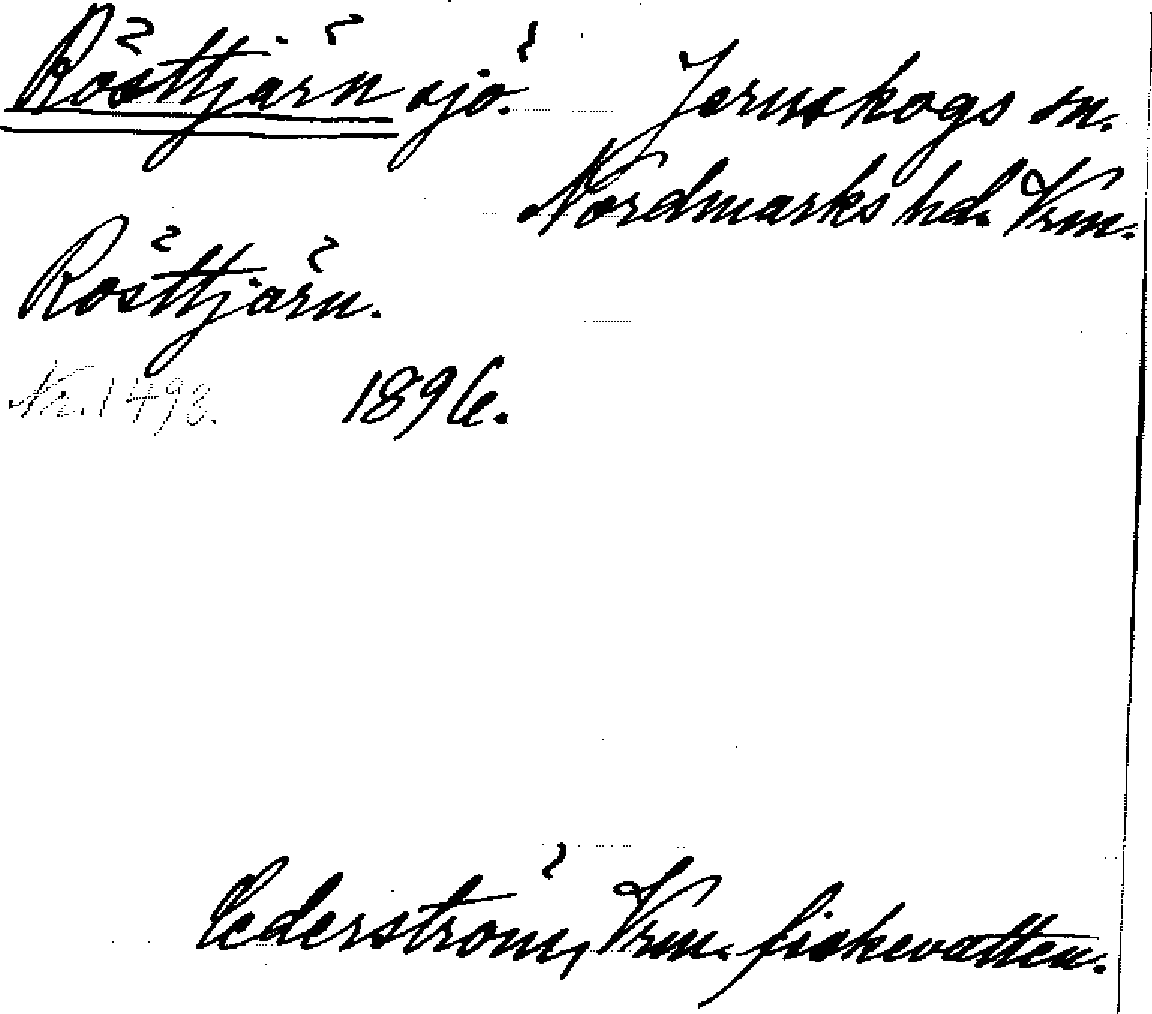 Rösttjärn sjö. Jernskogs sn.
Nordmarks hd. Vrm.
Rösttjärn.
Nr. 1498. 1896.
Cederström, Vrm. fiskevatten.